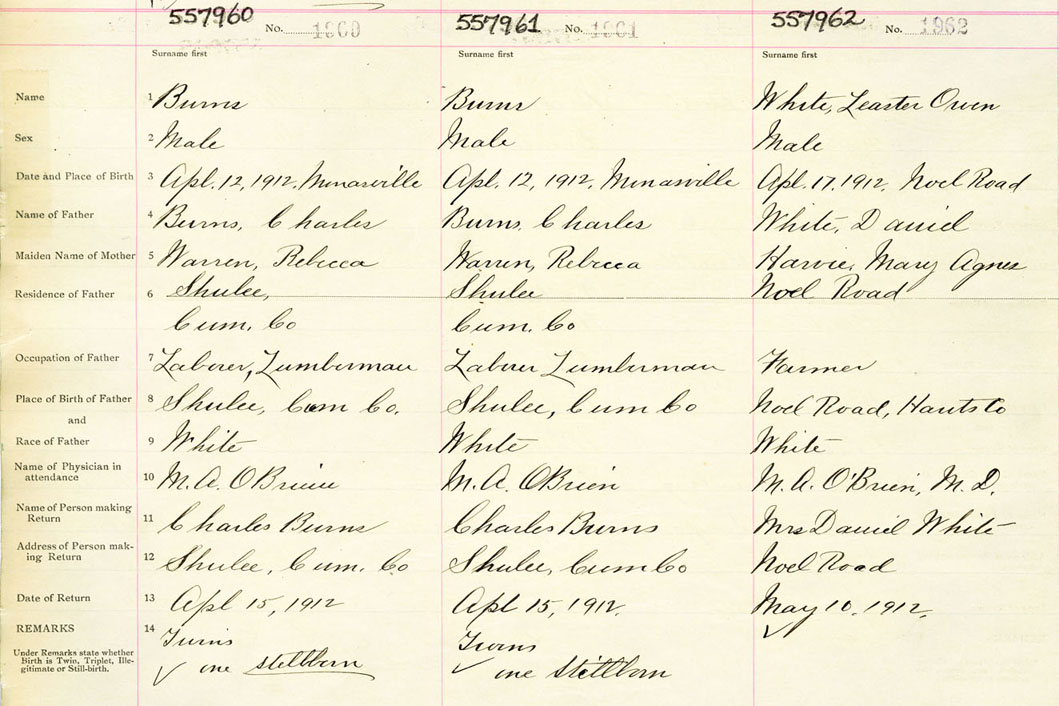 557960 No. 1960 557961 No. 1961 557962 No. 1962
Surname first Surname first Surname first
Name 1 Burns Burns White, Leaster Owen
Sex 2 Male Male Male
Date and Place of Birth 3 Apl. 12, 1912, Minasville Apl. 12, 1912, Minasville Apl. 17, 1912, Noel Road
Name of Father 4 Burns, Charles Burns, Charles White, Daniel
Maiden Name of Mother 5 Warren, Rebecca Warren, Rebecca Harvie, Mary Agnes
Residence of Father 6 Shulee, Shulee Noel Road
Cum. Co Cum. Co
Occupation of Father 7 Laborer, Lumberman Laborer Lumberman Farmer
Place of Birth of Father 8 Shulee, Cum Co. Shulee, Cum Co Noel Road, Hants Co
and
Race of Father 9 White White White
Name of Physician in
attendance 10 M. A. O'Brien M. A. O'Brien M. A. O'Brien, M. D.
Name of Person making
Return 11 Charles Burns Charles Burns Mrs Daniel White
Address of Person mak-
ing Return 12 Shulee, Cum. Co Shulee, Cum Co Noel Road
Date of Return 13 Apl 15, 1912 Apl 15, 1912. May 10, 1912.
REMARKS 14 Twins Twins
Under Remarks state whether
Birth is Twin, Triplet, Ille-
gitimate or Still-birth.
one stillborn one stillborn